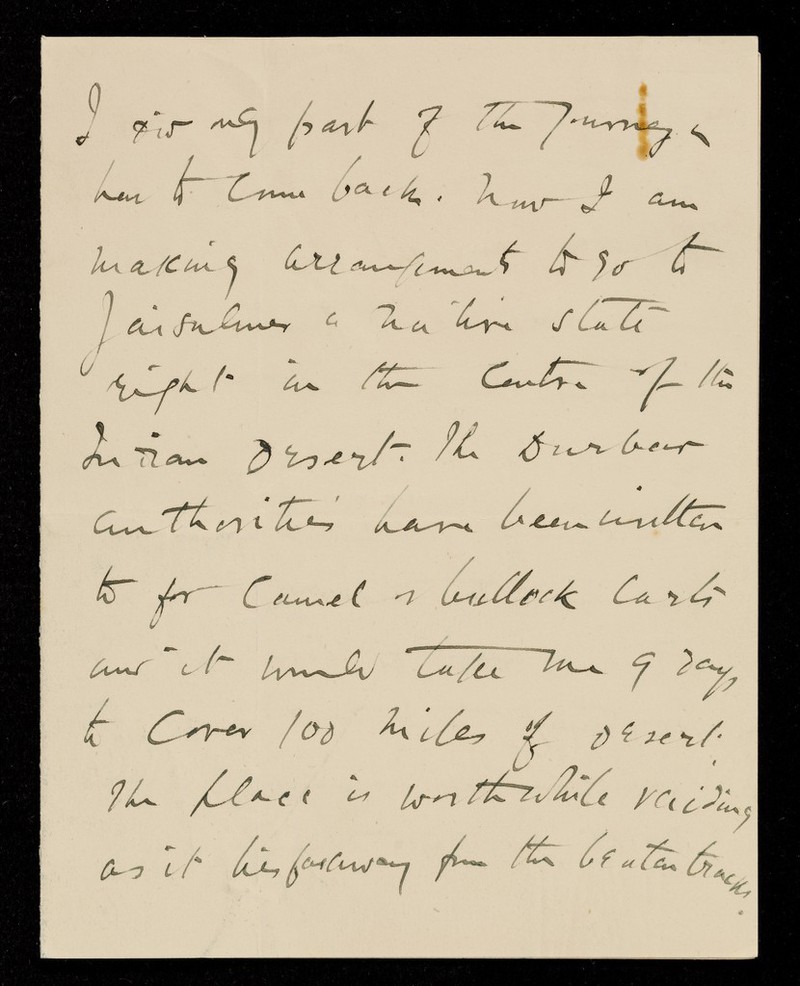 I did my part of the Journey &
had to Come back. Now I am
making arrangements to go to
Jaisulmer a native state
right in the Centre of the
Indian Desert. The Durbar
authorities have been written
to for Camel & bullock Carts
and it would take me 9 days
to Cover 100 miles of Desert.
The place is worth while raiding
as it lies far away from the beaten tracks.